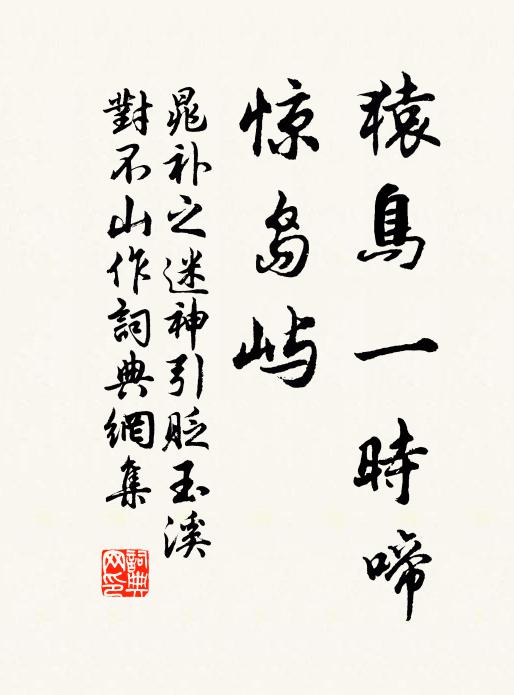 猿鳥一時啼
惊岛屿
晁补之迷神引貶玉溪
對不山作詞典網集
詞典網印